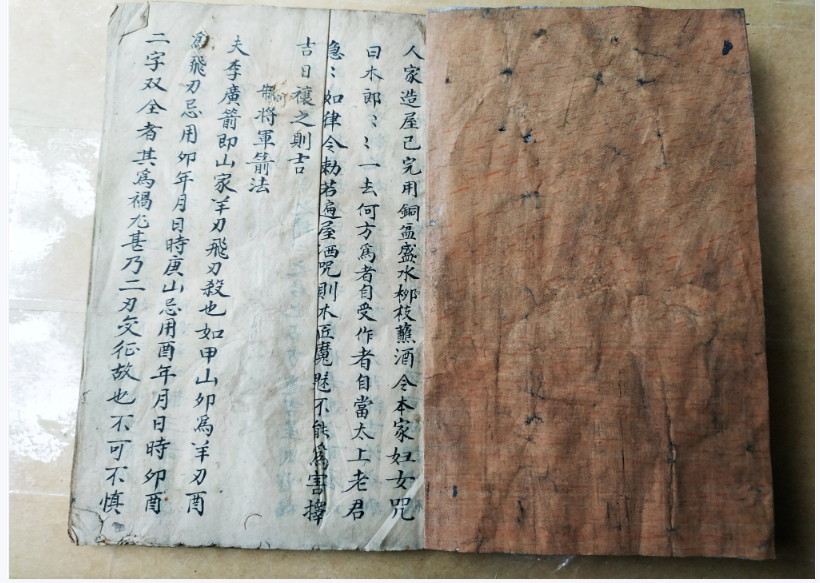 人家造屋已完用銅盆盛水柳枝蘸洒令本家妇女咒
曰木郎〻〻一去何方為者自受作者自當太上老君
急〻如律令勅若遍屋洒咒則木匠魔魅不能為害擇
吉日禳之則吉
制將軍箭法
夫李廣箭即山家羊刃飛刃殺也如甲山卯為羊刃酉
為飛刃忌用卯年月日時庚山忌用酉年月日時卯酉
二字双全者其為禍尤甚乃二刃交征故也不可不慎